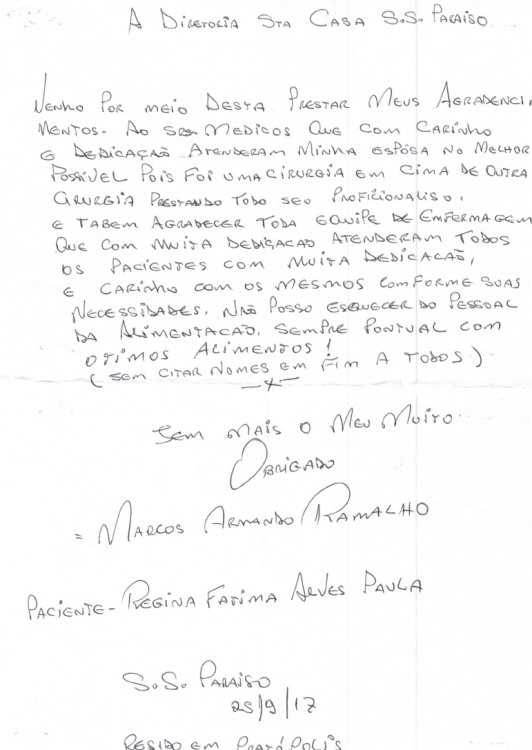 A Diretoria Sta Casa S.S. Paraiso
Venho por meio desta prestar meus agradenci
mentos - ao srs medicos que com carinho
e dedicação atenderam minha espôsa no melhor
possivel pois foi uma cirurgia em cima de outra
cirurgia prestando todo seu proficionaliso,
e tabem agradecer toda equipe de enfermagem
que com muita dedicacao atenderam todos
os pacientes com muita dedicacão,
e carinho com os mesmos comforme suas
necessidades. Não posso esquecer do pessoal
da alimentacao. Sempre pontual com
otimos alimentos!
(sem citar nomes em fim a todos)
Sem mais o meu muito
Obrigado
= Marcos Armando Ramalho
Paciente - Regina Fatima Alves Paula
S.S. Paraiso
25/9/17
Resido em Pratápolis